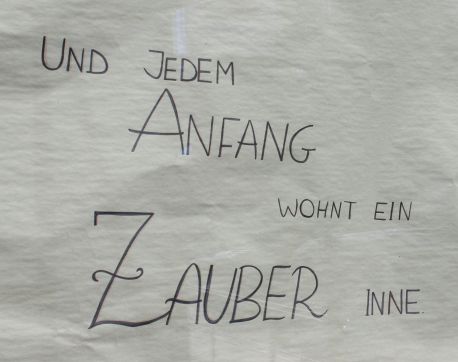 UND JEDEM
ANFANG
WOHNT EIN
ZAUBER INNE.